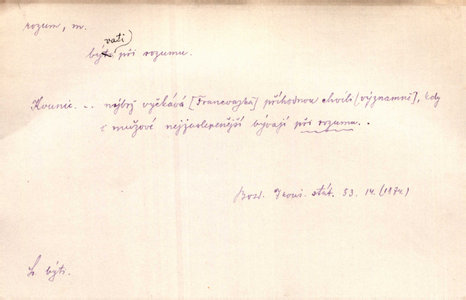 rozum, m.
vati
být při rozumu.
Kounic... nejbrž vyčkává [Francouzka] příhodnou chvíli (významně), kdy
i mužové nejzaslepenější bývají při rozumu..
Boz. stát. 53. 14. (1874)
S. být.